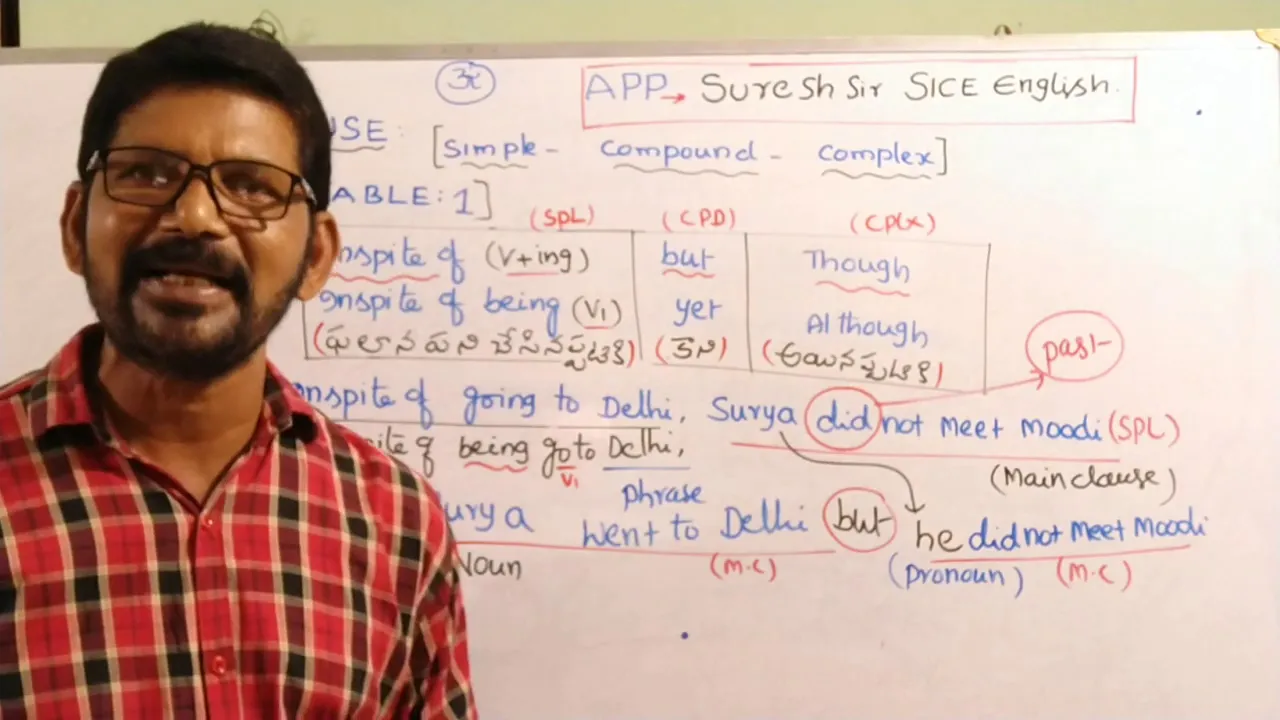 ॐ
APP → Suresh Sir SICE English.
USE: [Simple - Compound - Complex]
ABLE: 1]
(SPL) (CPD) (CPLX)
nspite of (V+ing) but Though
Inspite of being (V1) yet Although
(ఫలాన పని చేసినప్పటికి) (కాని) (అయినప్పటికి)
past
nspite of going to Delhi, Surya did not meet Moodi (SPL)
ite of being go to Delhi, (Main clause)
V1
phrase
urya went to Delhi but he did not meet Moodi
Noun (M.C) (pronoun) (M.C)